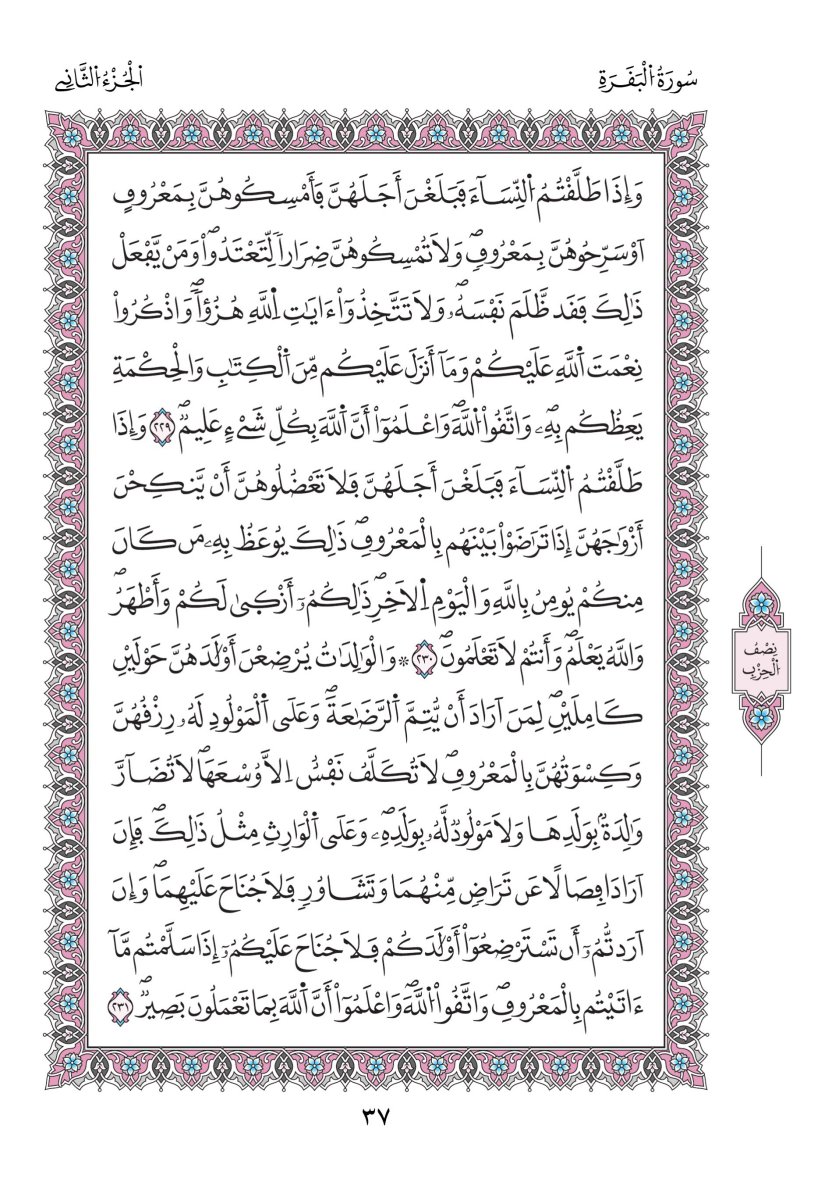 سُورَةُ اُ۬لْبَقَرَةِ
اَ۬لْجُزْءُ اُ۬لثَّانِے
وَإِذَا طَلَّقْتُمُ اُ۬لنِّسَآءَ فَبَلَغْنَ أَجَلَهُنَّ فَأَمْسِكُوهُنَّ بِمَعْرُوفٍ
اَوْ سَرِّحُوهُنَّ بِمَعْرُوفٖۖ وَلَا تُمْسِكُوهُنَّ ضِرَاراٗ لِّتَعْتَدُواْۖ وَمَنْ يَّفْعَلْ
ذَٰلِكَ فَقَد ظَّلَمَ نَفْسَهُۥۖ وَلَا تَتَّخِذُوٓاْ ءَايَٰتِ اِ۬للَّهِ هُزُؤاٗۖ وَاذْكُرُواْ
نِعْمَتَ اَ۬للَّهِ عَلَيْكُمْ وَمَآ أَنزَلَ عَلَيْكُم مِّنَ اَ۬لْكِتَٰبِ وَالْحِكْمَةِ
يَعِظُكُم بِهِۦۖ وَاتَّقُواْ اُ۬للَّهَۖ وَاعْلَمُوٓاْ أَنَّ اَ۬للَّهَ بِكُلِّ شَےْءٍ عَلِيمٞۖ ٢٢٩ وَإِذَا
طَلَّقْتُمُ اُ۬لنِّسَآءَ فَبَلَغْنَ أَجَلَهُنَّ فَلَا تَعْضُلُوهُنَّ أَنْ يَّنكِحْنَ
أَزْوَٰجَهُنَّ إِذَا تَرَٰضَوْاْ بَيْنَهُم بِالْمَعْرُوفِۖ ذَٰلِكَ يُوعَظُ بِهِۦ مَن كَانَ
مِنكُمْ يُومِنُ بِاللَّهِ وَالْيَوْمِ اِ۬لَاخِرِۖ ذَٰلِكُمُۥٓ أَزْكىٰ لَكُمْ وَأَطْهَرُۖ
وَاللَّهُ يَعْلَمُۖ وَأَنتُمْ لَا تَعْلَمُونَۖ ٢٣٠ ۞ وَالْوَٰلِدَٰتُ يُرْضِعْنَ أَوْلَٰدَهُنَّ حَوْلَيْنِ
كَامِلَيْنِۖ لِمَنَ اَرَادَ أَنْ يُّتِمَّ اَ۬لرَّضَٰعَةَۖ وَعَلَى اَ۬لْمَوْلُودِ لَهُۥ رِزْقُهُنَّ
وَكِسْوَتُهُنَّ بِالْمَعْرُوفِۖ لَا تُكَلَّفُ نَفْسٌ اِلَّا وُسْعَهَاۖ لَا تُضَآرَّ
وَٰلِدَةُۢ بِوَلَدِهَا وَلَا مَوْلُودٞ لَّهُۥ بِوَلَدِهِۦۖ وَعَلَى اَ۬لْوَارِثِ مِثْلُ ذَٰلِكَۖ فَإِنَ
اَرَادَا فِصَالًا عَن تَرَاضٖ مِّنْهُمَا وَتَشَاوُرٖ فَلَا جُنَاحَ عَلَيْهِمَاۖ وَإِنَ
اَرَدتُّمُۥٓ أَن تَسْتَرْضِعُوٓاْ أَوْلَٰدَكُمْ فَلَا جُنَاحَ عَلَيْكُمُۥٓ إِذَا سَلَّمْتُم مَّآ
ءَاتَيْتُم بِالْمَعْرُوفِۖ وَاتَّقُواْ اُ۬للَّهَۖ وَاعْلَمُوٓاْ أَنَّ اَ۬للَّهَ بِمَا تَعْمَلُونَ بَصِيرٞۖ ٢٣١
نِصْفُ
اُ۬لْحِزْبِ
٣٧